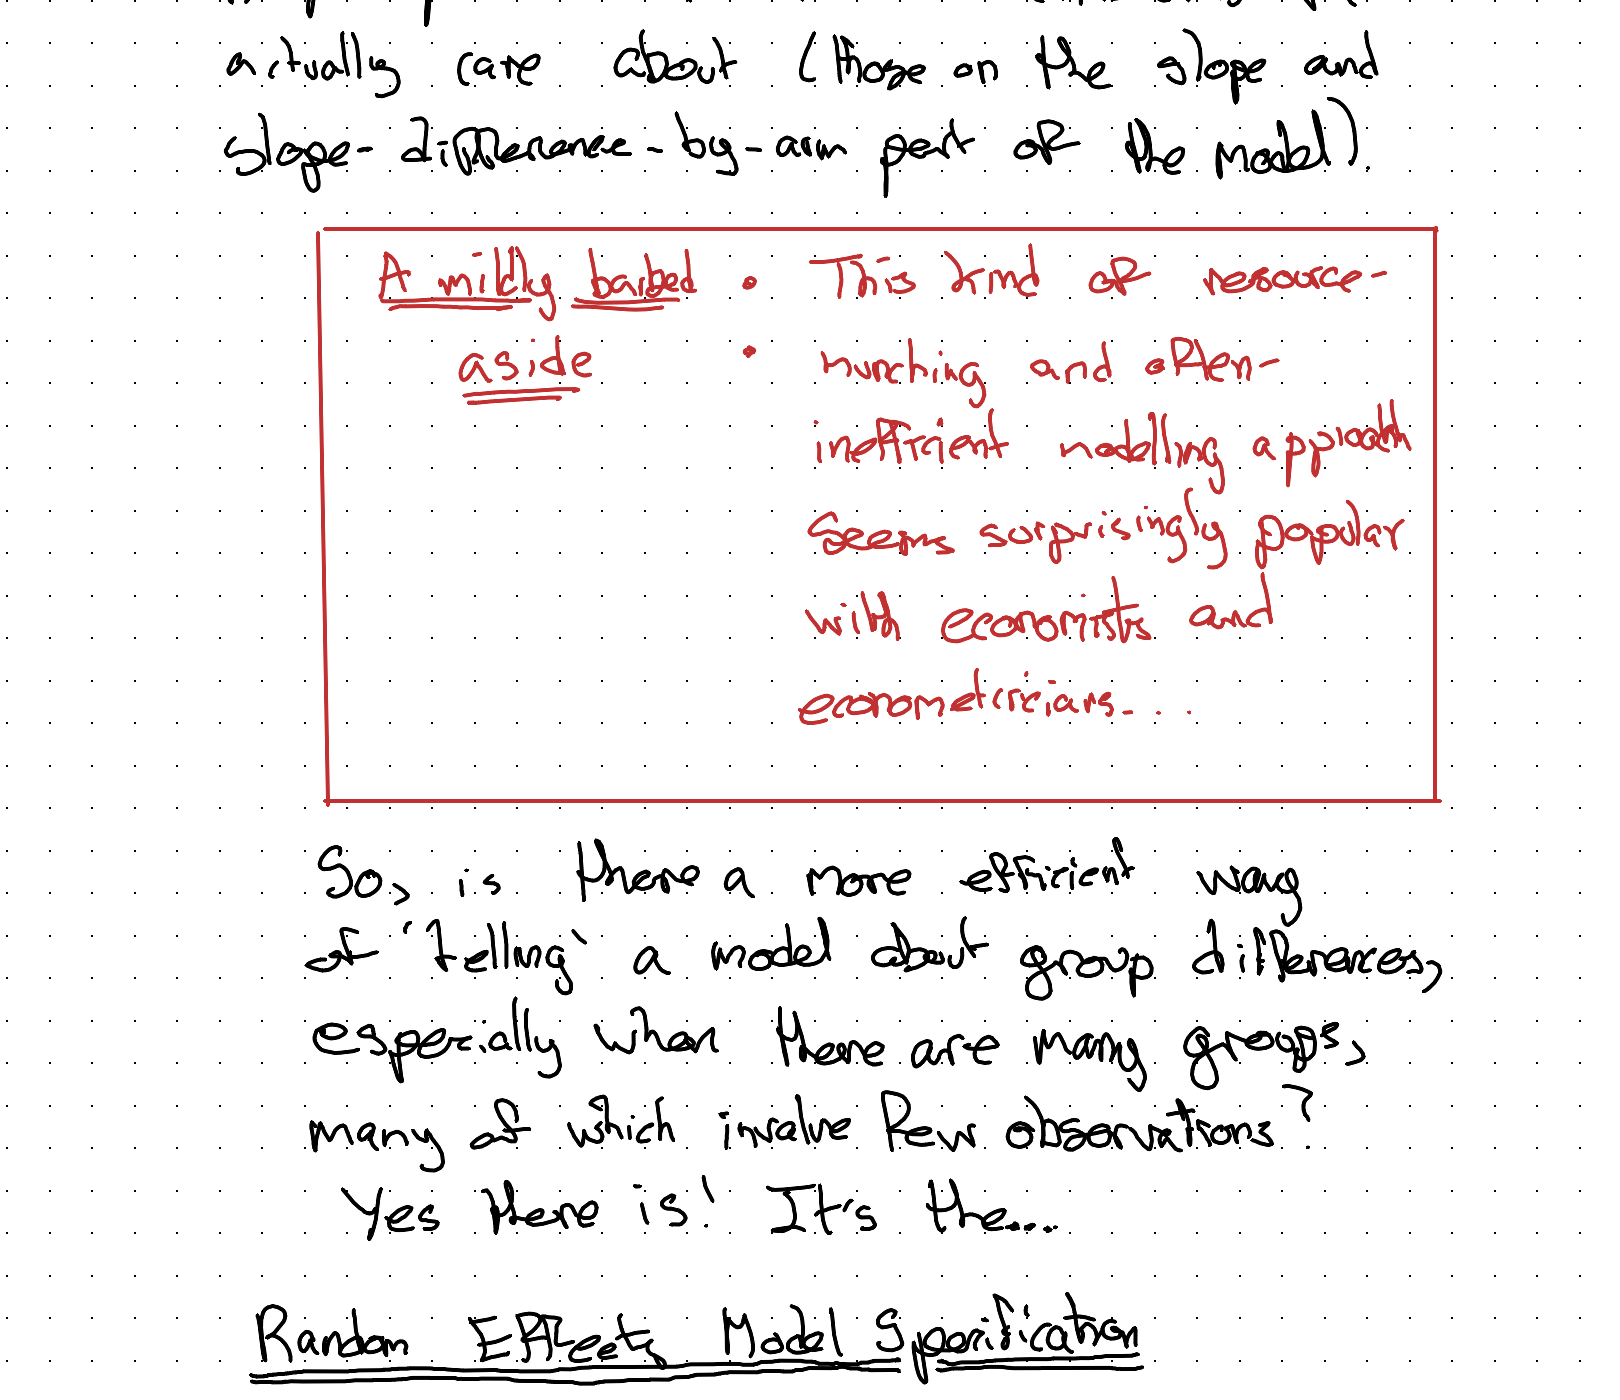 actually care about (those on the slope and
slope-difference-by-arm part of the model).
A mildly barbed : This kind of resource-
aside munching and often-
inefficient modelling approach
seems surprisingly popular
with economists and
econometricians...
So, is there a more efficient way
of 'telling' a model about group differences,
especially when there are many groups,
many of which involve few observations?
Yes there is! It's the....
Random Effects Model Specification